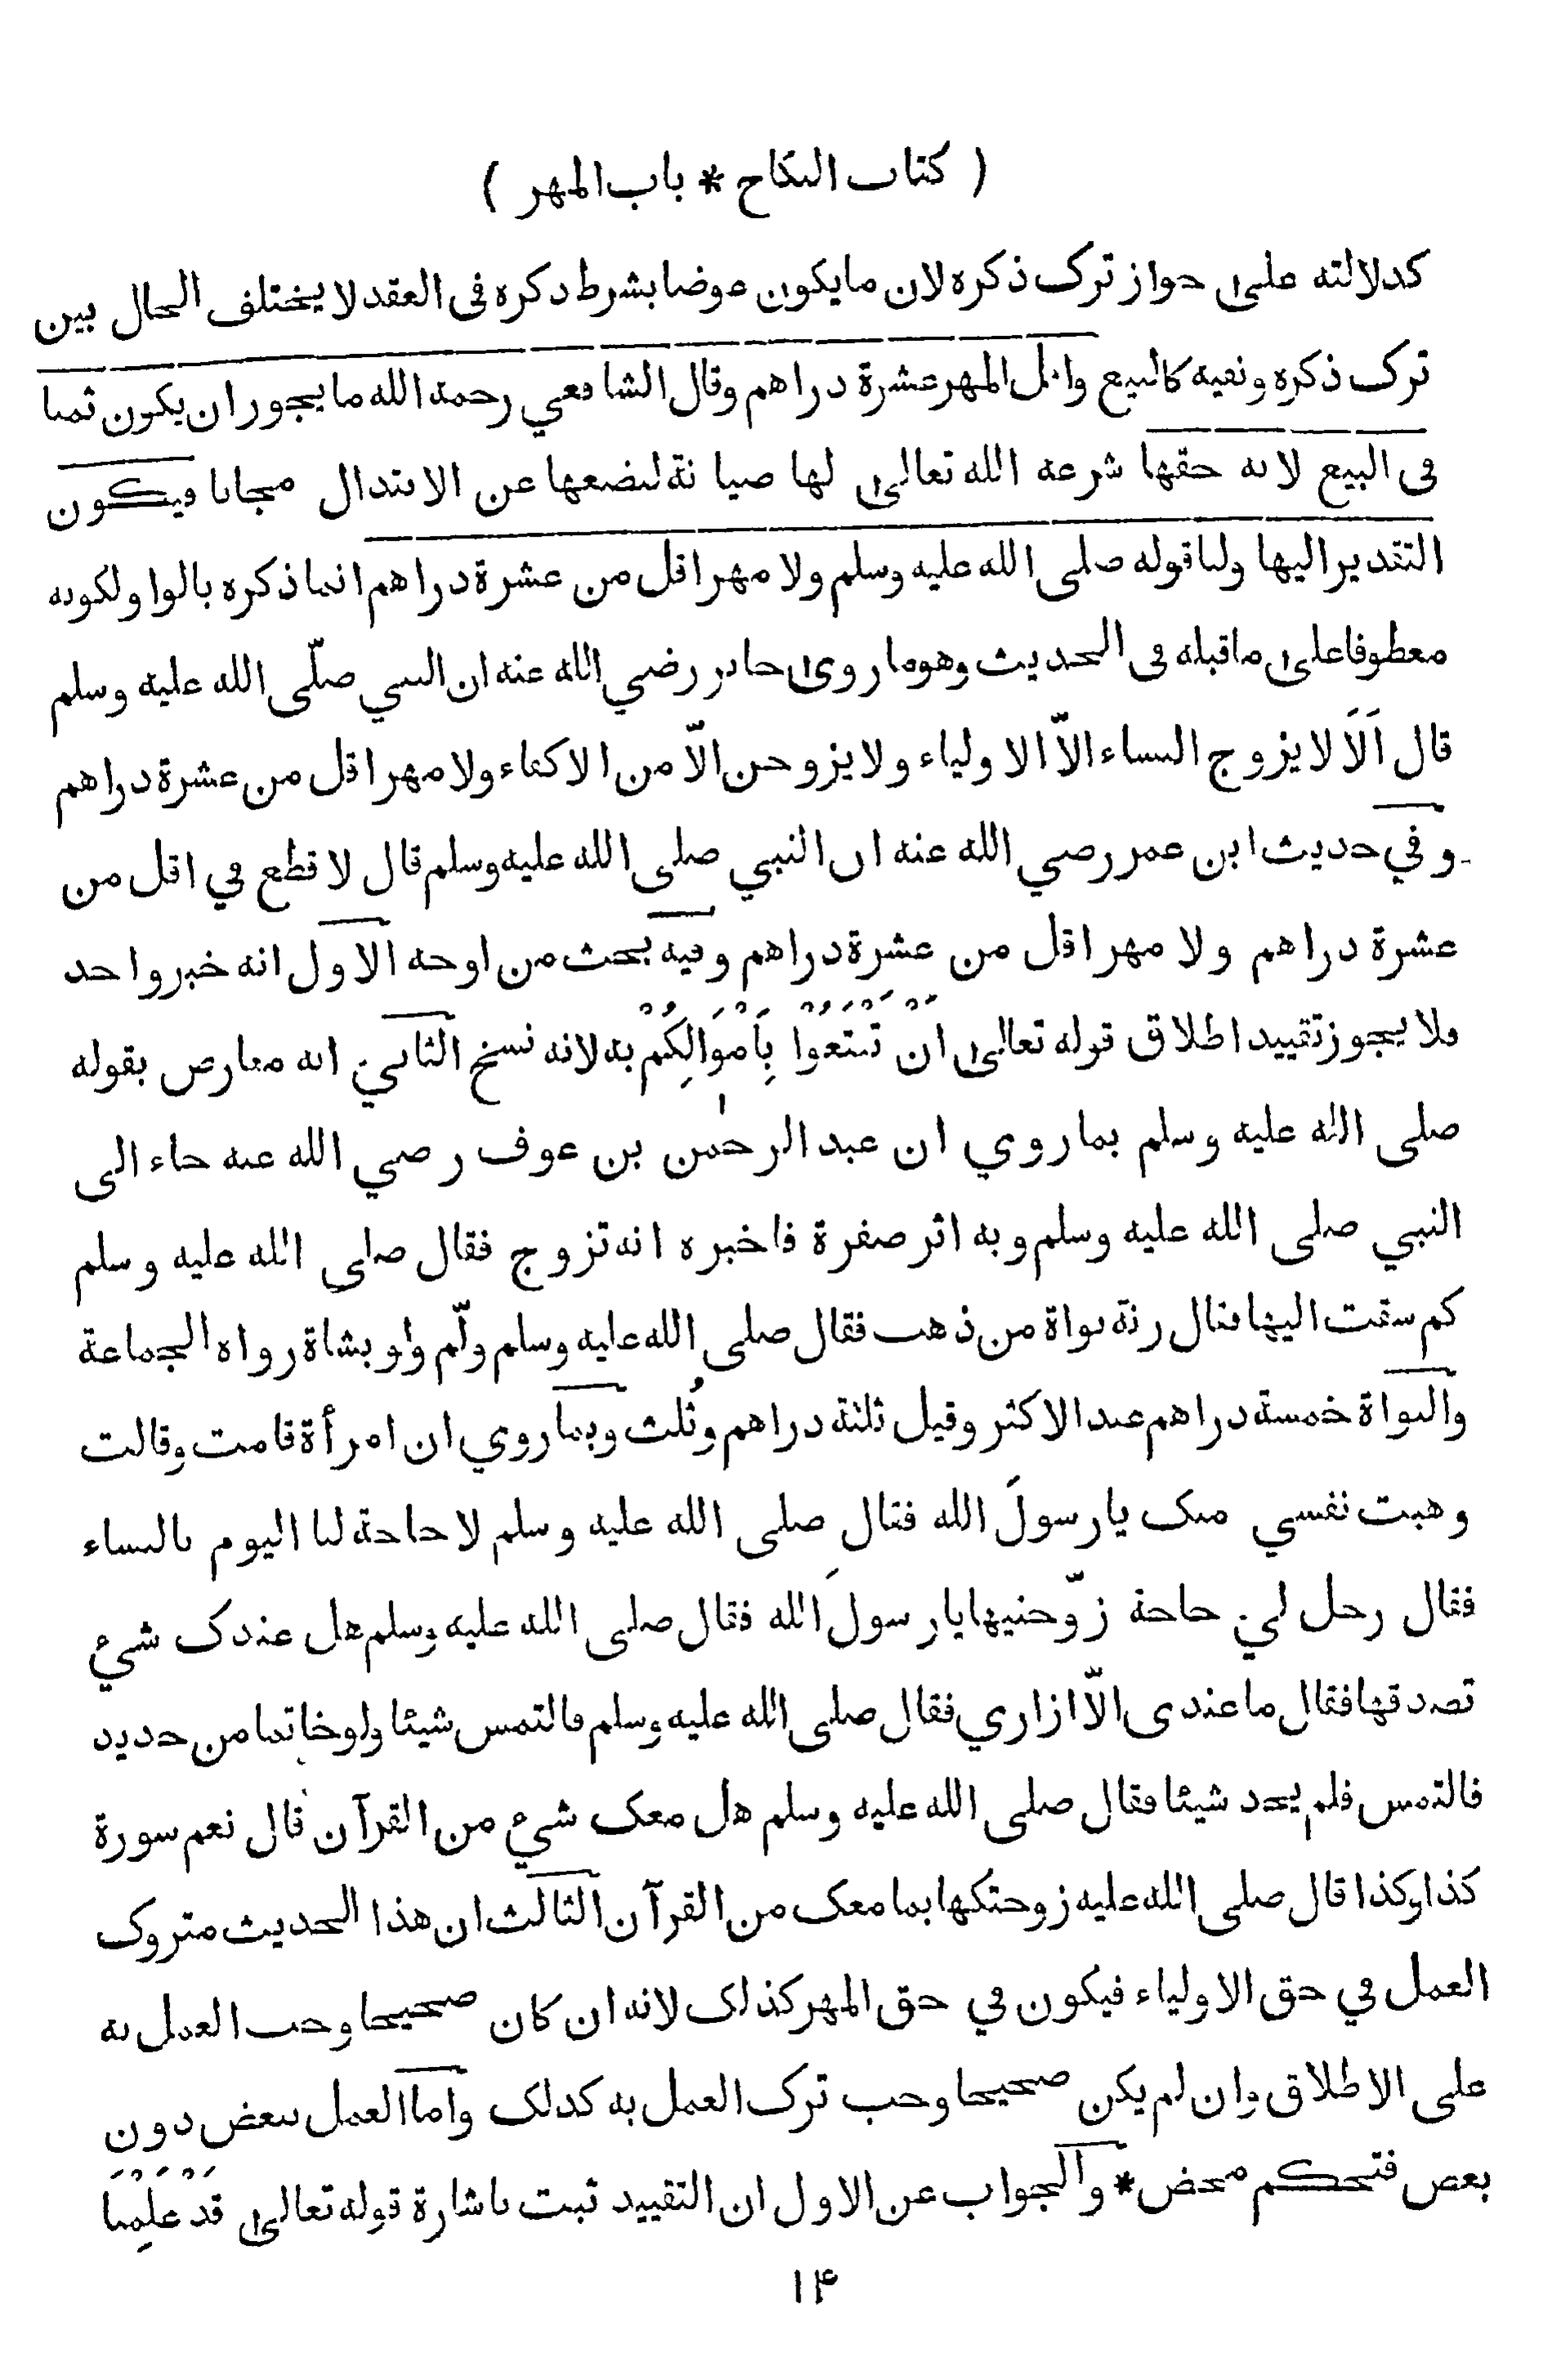 ( كتاب النكاح * باب المهر )
كدلالته على جواز ترك ذكره لان مايكون عوضا بشرط ذكره فى العقد لا يختلف الحال بين
ترك ذكره ونفيه كالبيع واقل المهر عشرة دراهم وقال الشافعي رحمه الله ما يجوز ان يكون ثمنا
فى البيع لانه حقها شرعه الله تعالى لها صيانة لبضعها عن الابتذال مجانا فيكون
التقدير اليها ولنا قوله صلى الله عليه وسلم ولا مهر اقل من عشرة دراهم انما ذكره بالواو لكونه
معطوفا على ماقبله فى الحديث وهو ما روى جابر رضي الله عنه ان النبي صلّى الله عليه وسلم
قال اَلَا لا يزوج النساء الاّ الاولياء ولا يزوجن الاّ من الاكفاء ولا مهر اقل من عشرة دراهم
وفي حديث ابن عمر رضي الله عنه ان النبي صلى الله عليه وسلم قال لا قطع في اقل من
عشرة دراهم ولا مهر اقل من عشرة دراهم وفيه بحث من اوجه الاول انه خبر واحد
فلا يجوز تقييد اطلاق قوله تعالى اَنْ تَبْتَغُوْا بِاَمْوَالِكُمْ به لانه نسخ الثاني انه معارض بقوله
صلى الله عليه وسلم بما روي ان عبد الرحمٰن بن عوف رضي الله عنه جاء الى
النبي صلى الله عليه وسلم وبه اثر صفرة فاخبره انه تزوج فقال صلى الله عليه وسلم
كم سقت اليها فقال زنة نواة من ذهب فقال صلى الله عليه وسلم ولّم ولو بشاة رواه الجماعة
والنواة خمسة دراهم عند الاكثر وقيل ثلثة دراهم وثُلث وبما روي ان امرأة قامت وقالت
وهبت نفسي منك يا رسولَ الله فقال صلى الله عليه وسلم لا حاجة لنا اليوم بالنساء
فقال رجل لي حاجة زوّجنيها يا رسولَ الله فقال صلى الله عليه وسلم هل عندك شيء
تصدقها فقال ما عندى الاّ ازاري فقال صلى الله عليه وسلم فالتمس شيئا ولو خاتما من حديد
فالتمس فلم يجد شيئا فقال صلى الله عليه وسلم هل معك شيء من القرآن قال نعم سورة
كذا وكذا قال صلى الله عليه زوجتكها بما معك من القرآن الثالث ان هذا الحديث متروك
العمل في حق الاولياء فيكون في حق المهر كذلك لانه ان كان صحيحا وجب العمل به
على الاطلاق وان لم يكن صحيحا وجب ترك العمل به كذلك واما العمل ببعض دون
بعض فتحكم محض * والجواب عن الاول ان التقييد ثبت باشارة قوله تعالى قَدْ عَلِمْنَا
۱۴